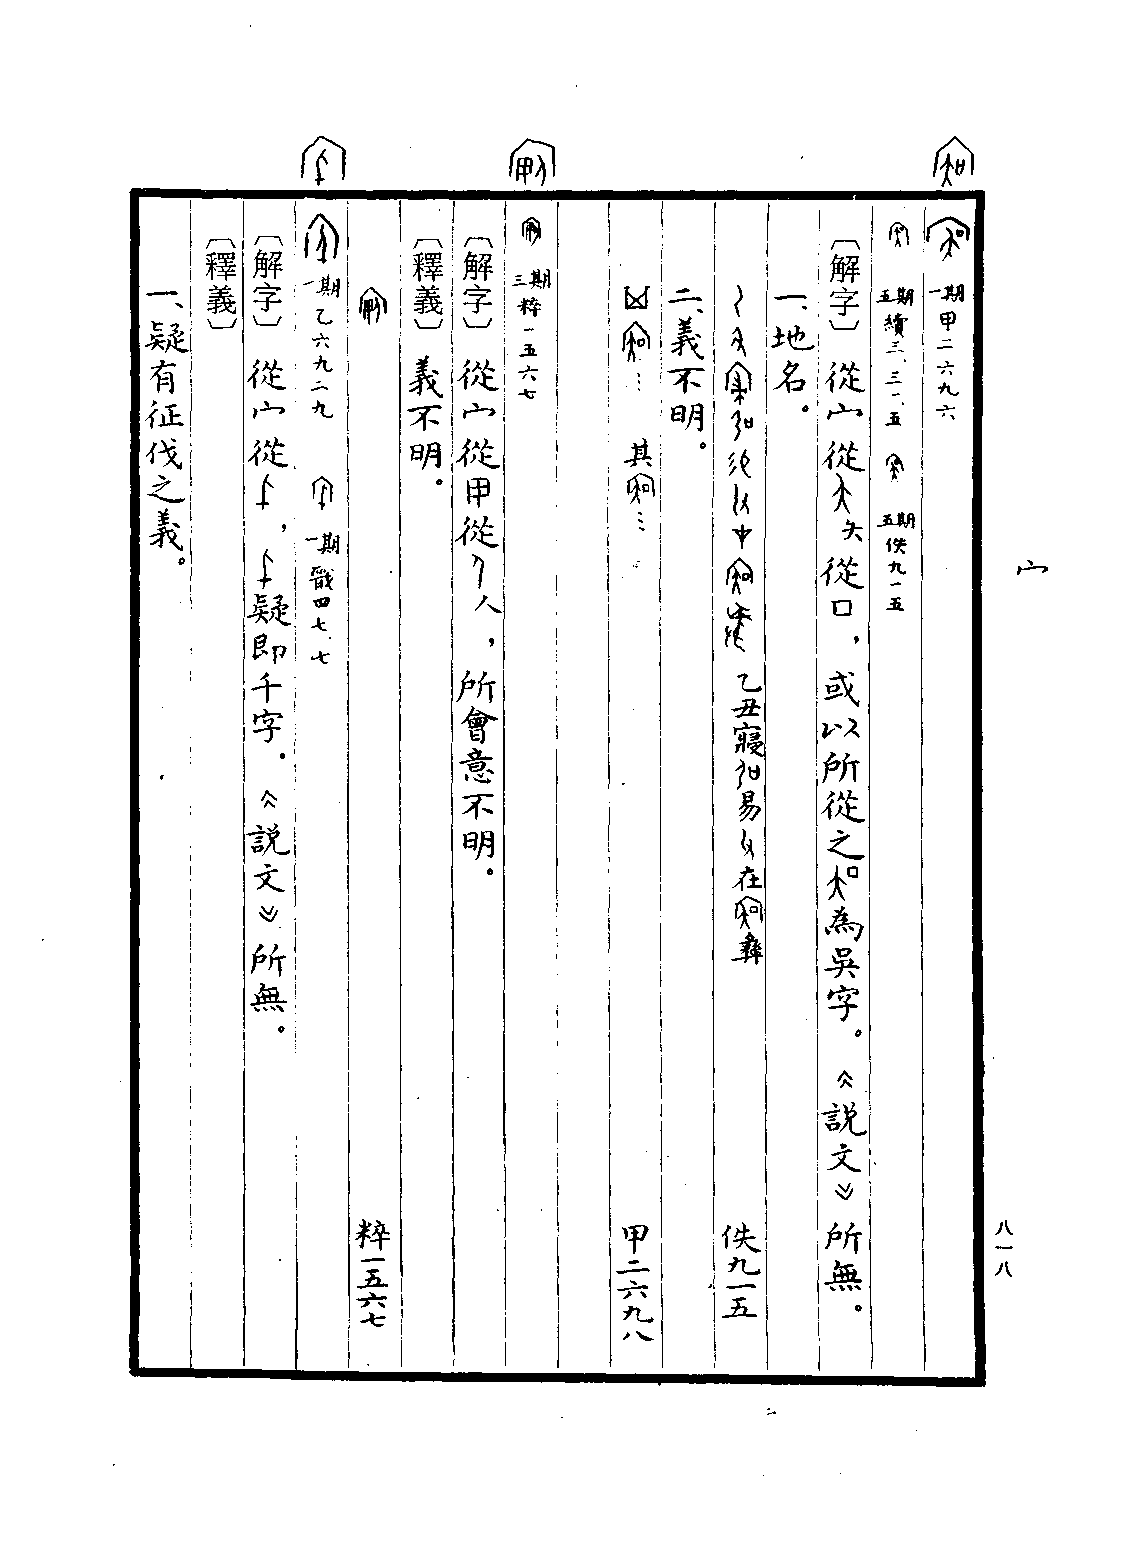 宀
八一八
一期甲二六九六
五期續三.三一.五 五期佚九一五
〔解字〕從宀從夨從口，或以所從之為吳字。《説文》所無。
一、地名。
乙丑寢易在彝 佚九一五
二、義不明。
… 其… 甲二六九八
三期粹一五六七
〔解字〕從宀從甲從人，所會意不明。
〔釋義〕義不明。
粹一五六七
一期乙六九二九 一期戩四七.七
〔解字〕從宀從，疑即千字。《説文》所無。
〔釋義〕
一、疑有征伐之義。